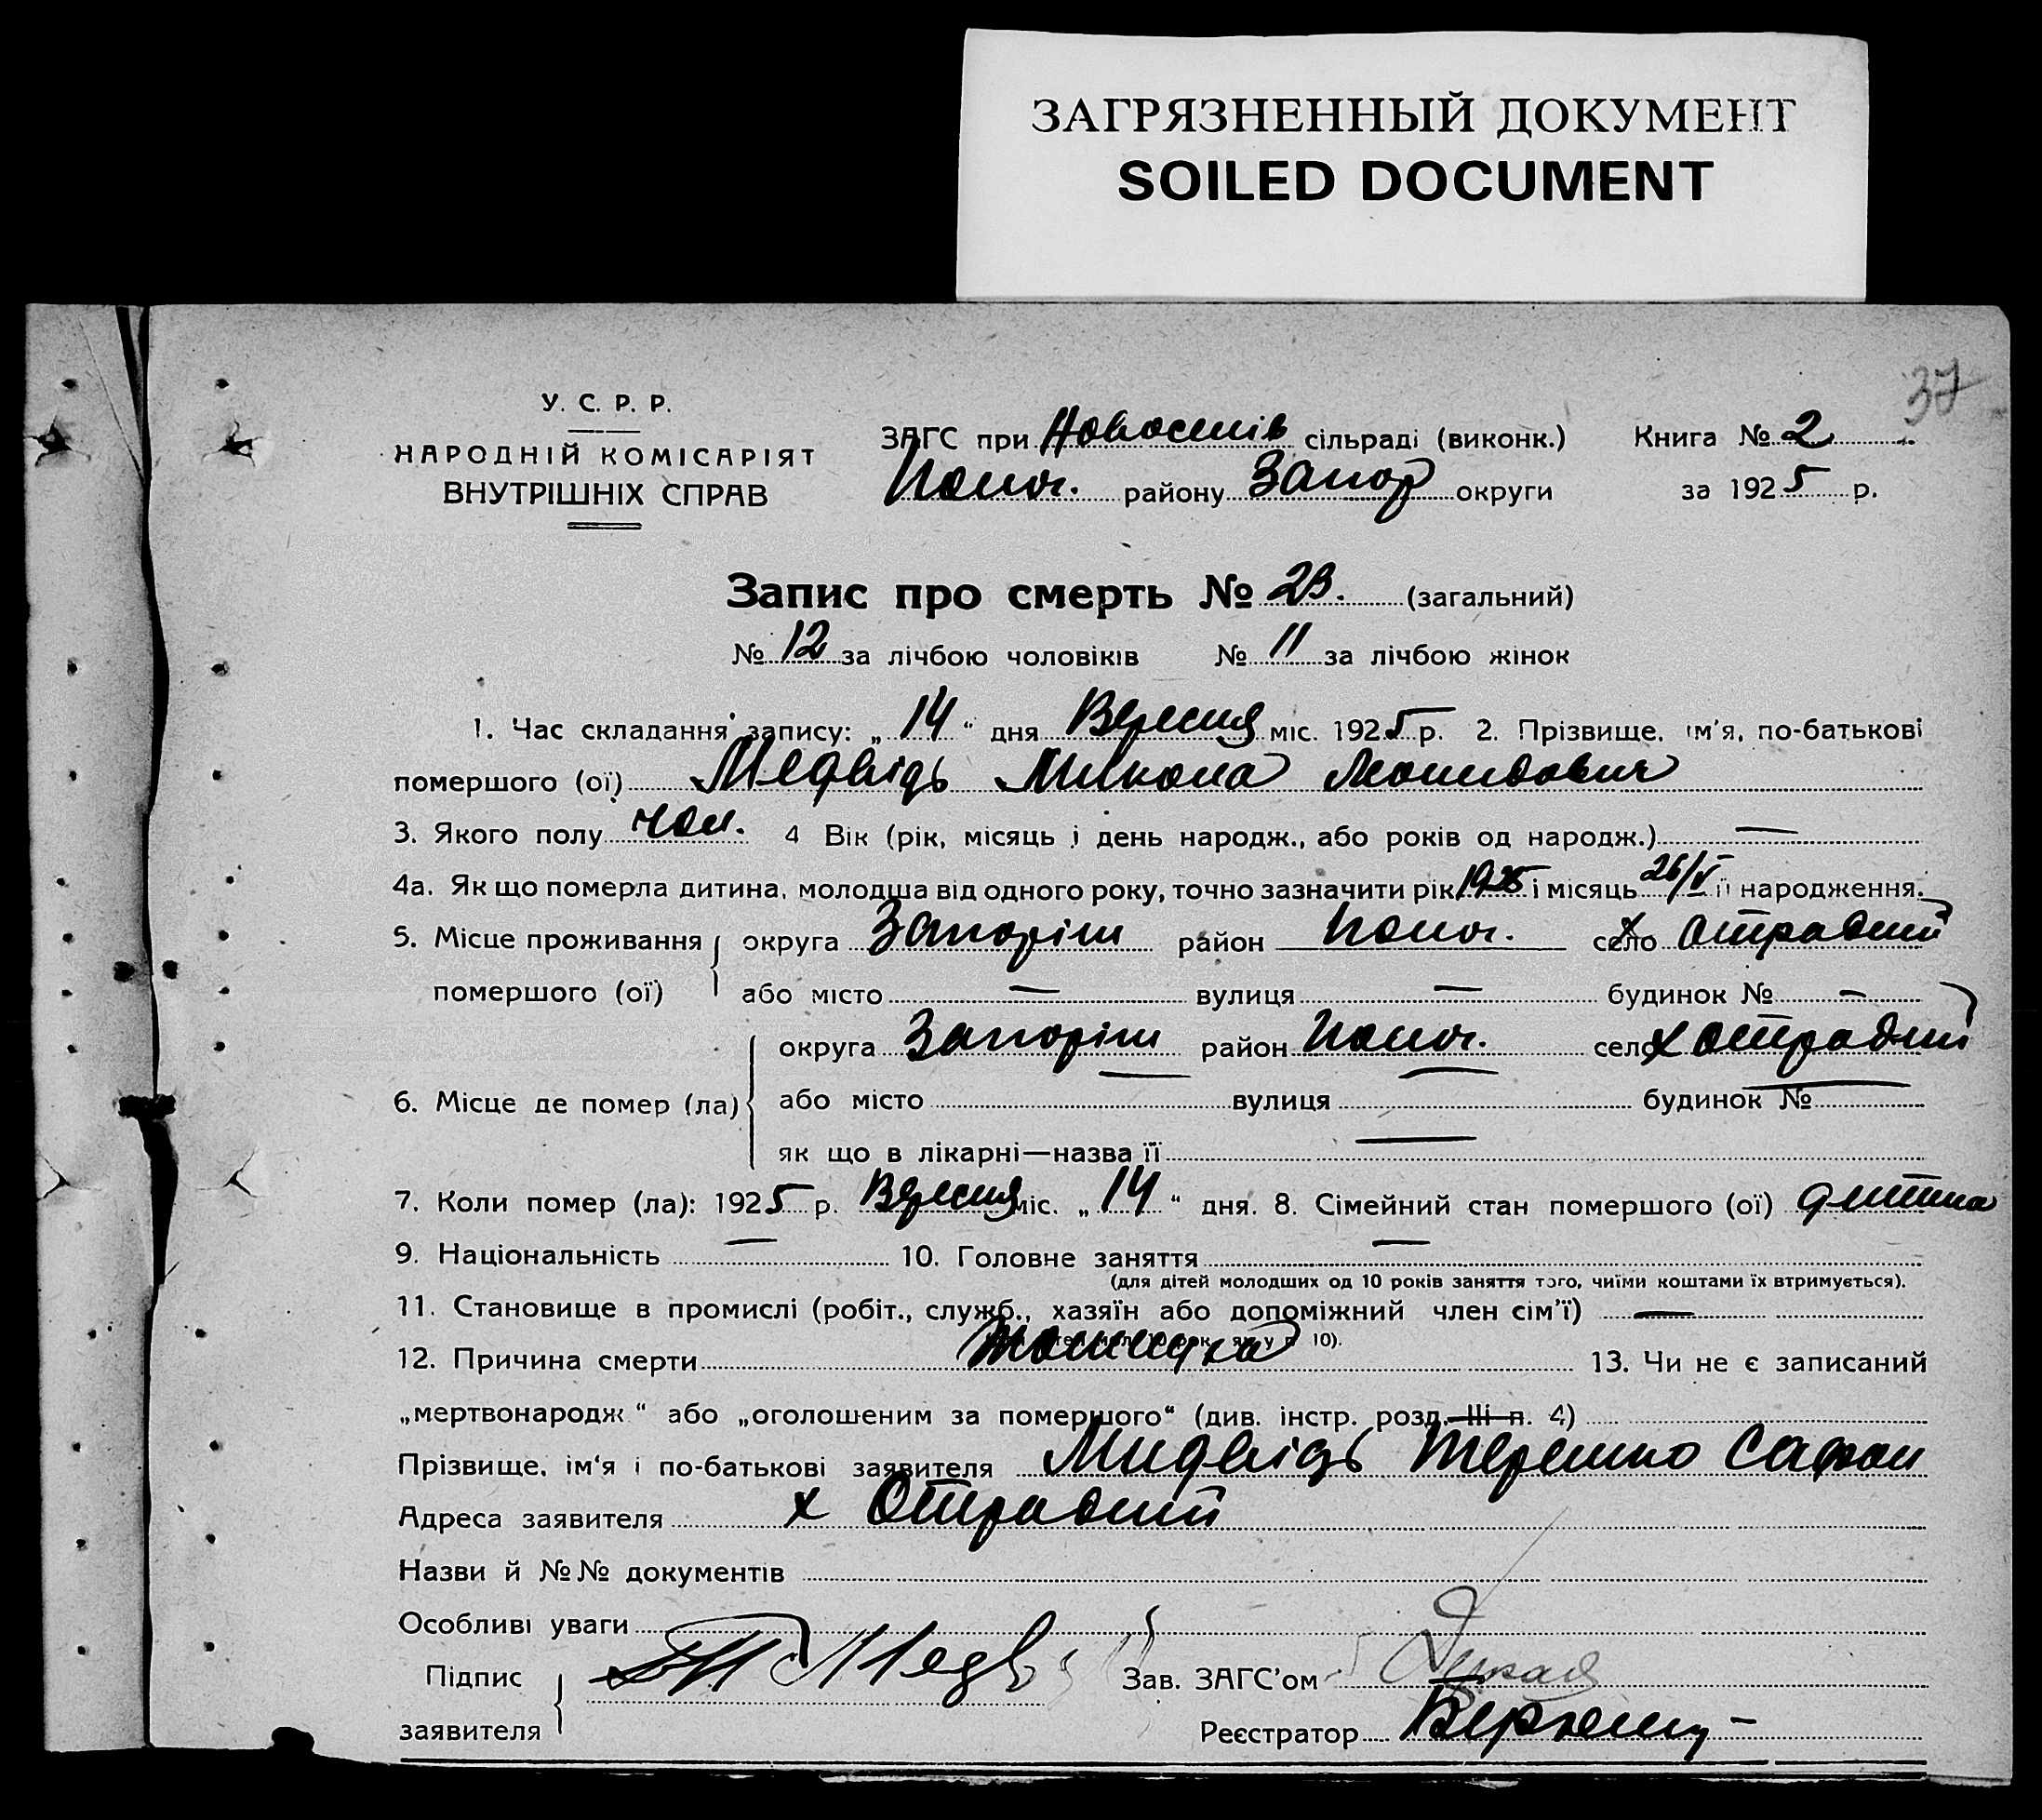 ЗАГРЯЗНЕННЫЙ ДОКУМЕНТ
SOILED DOCUMENT
37
У. С. Р. Р.
НАРОДНІЙ КОМІСАРІЯТ
ВНУТРІШНІХ СПРАВ
ЗАГС при Новоселів сільраді (виконк.) Книга № 2
району Запор округи за 1925 р.
Запис про смерть № 23. (загальний)
№ 12 за лічбою чоловіків № 11 за лічбою жінок
1. Час складання запису: „ 14 “ дня Вересня міс. 1925 р. 2. Прізвище, ім'я, по-батькові
помершого (ої) Медвідь Микола
3. Якого полу чол. 4 Вік (рік, місяць і день народж., або років од народж.) —
4а. Як що померла дитина, молодша від одного року, точно зазначити рік 1925 і місяць 26/V її народження.
5. Місце проживання округа Запоріж район село х Отрадний
помершого (ої) або місто — вулиця — будинок № —
округа Запоріж район село х Отрадний
6. Місце де помер (ла) або місто — вулиця — будинок № —
як що в лікарні—назва її —
7. Коли помер (ла): 1925 р. Вересня міс. „ 14 “ дня. 8. Сімейний стан помершого (ої) дитина
9. Національність — 10. Головне заняття —
(для дітей молодших од 10 років заняття того, чиїми коштами їх втримується).
11. Становище в промислі (робіт., служб., хазяїн або допоміжний член сім'ї) —
12. Причина смерти 13. Чи не є записаний
„мертвонародж.“ або „оголошеним за помершого“ (див. інстр. розд. III п. 4)
Прізвище, ім'я і по-батькові заявителя Мидвідь Терешко Сафон
Адреса заявителя х Отрадний
Назви й №№ документів
Особливі уваги
Підпис Зав. ЗАГС'ом
заявителя Реєстратор